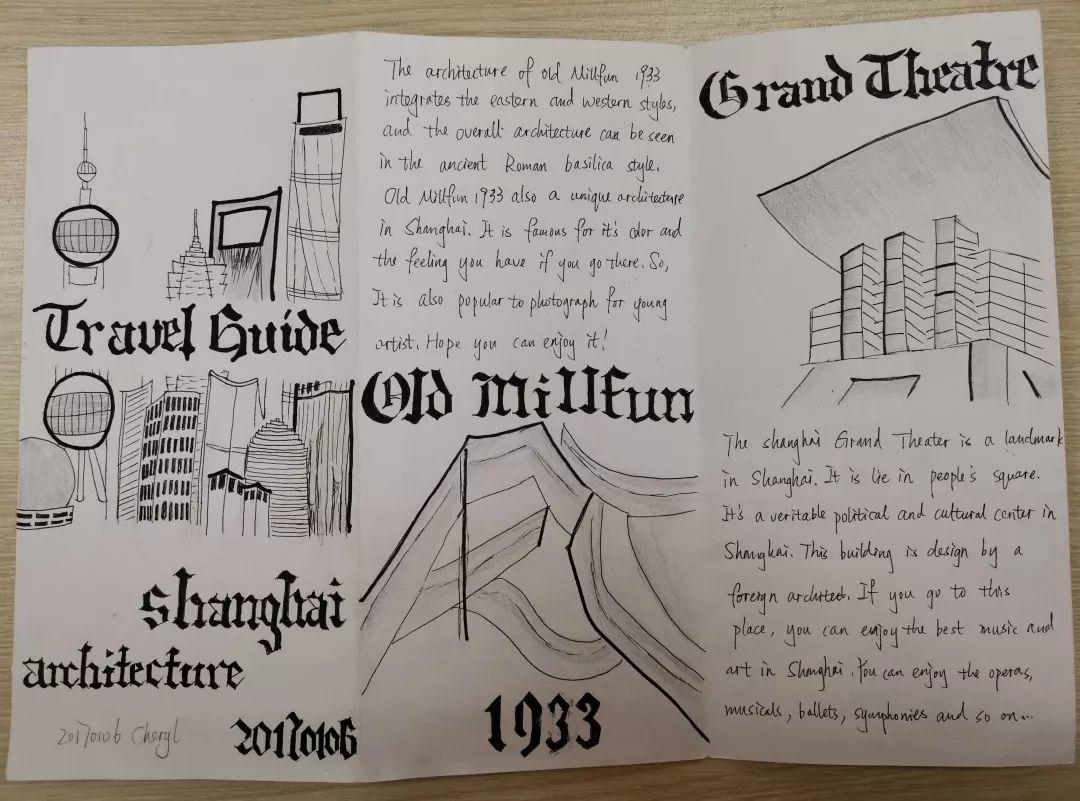 Travel Guide
Shanghai
architecture
20170106 Cheryl
20170106
The architecture of old Millfun 1933
integrates the eastern and western styles,
and the overall architecture can be seen
in the ancient Roman basilica style.
Old Millfun 1933 also a unique architecture
in Shanghai. It is famous for it's color and
the feeling you have if you go there. So,
It is also popular to photograph for young
artist. Hope you can enjoy it!
Old Millfun
1933
Grand Theatre
The shanghai Grand Theater is a landmark
in Shanghai. It is lie in people's square.
It's a veritable political and cultural center in
Shanghai. This building is design by a
foreign architect. If you go to this
place, you can enjoy the best music and
art in Shanghai. You can enjoy the operas,
musicals, ballets, symphonies and so on...